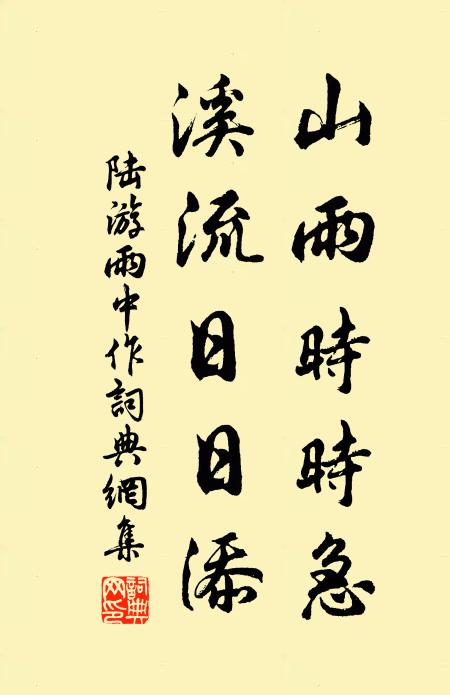 山雨時時急
溪流日日添
陸游雨中作詞典網集
詞典網印